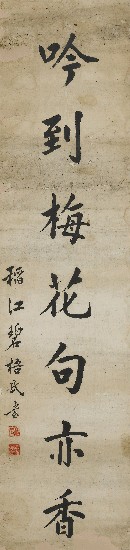 吟到梅花句亦香
稻江碧梧氏書